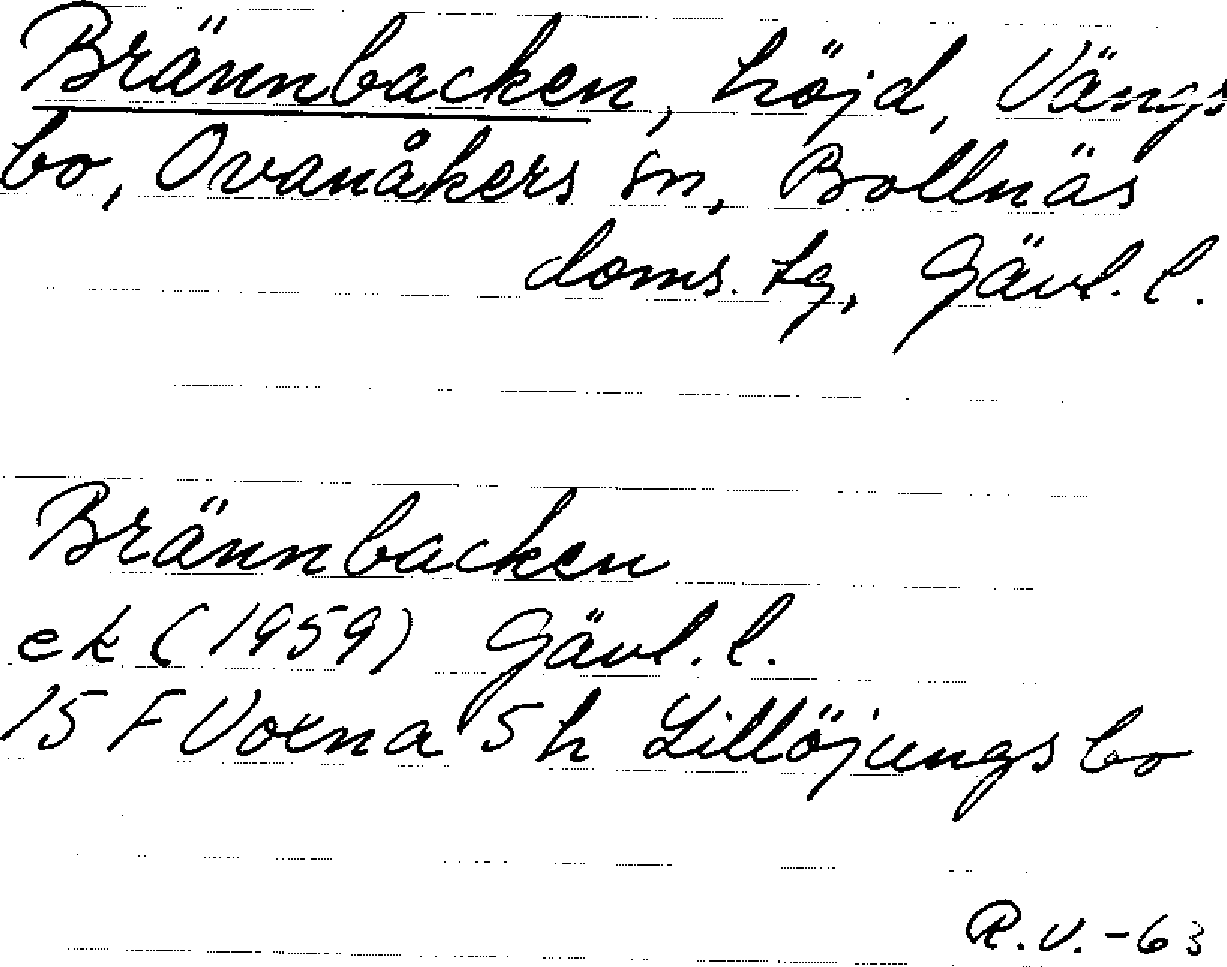 Brännbacken, höjd, Vängs
bo, Ovanåkers sn, Bollnäs
doms. tg, Gävl. l.
Brännbacken
ek (1959) Gävl. l.
15 F Voxna 5 h Lillöjungsbo
R.V.-63